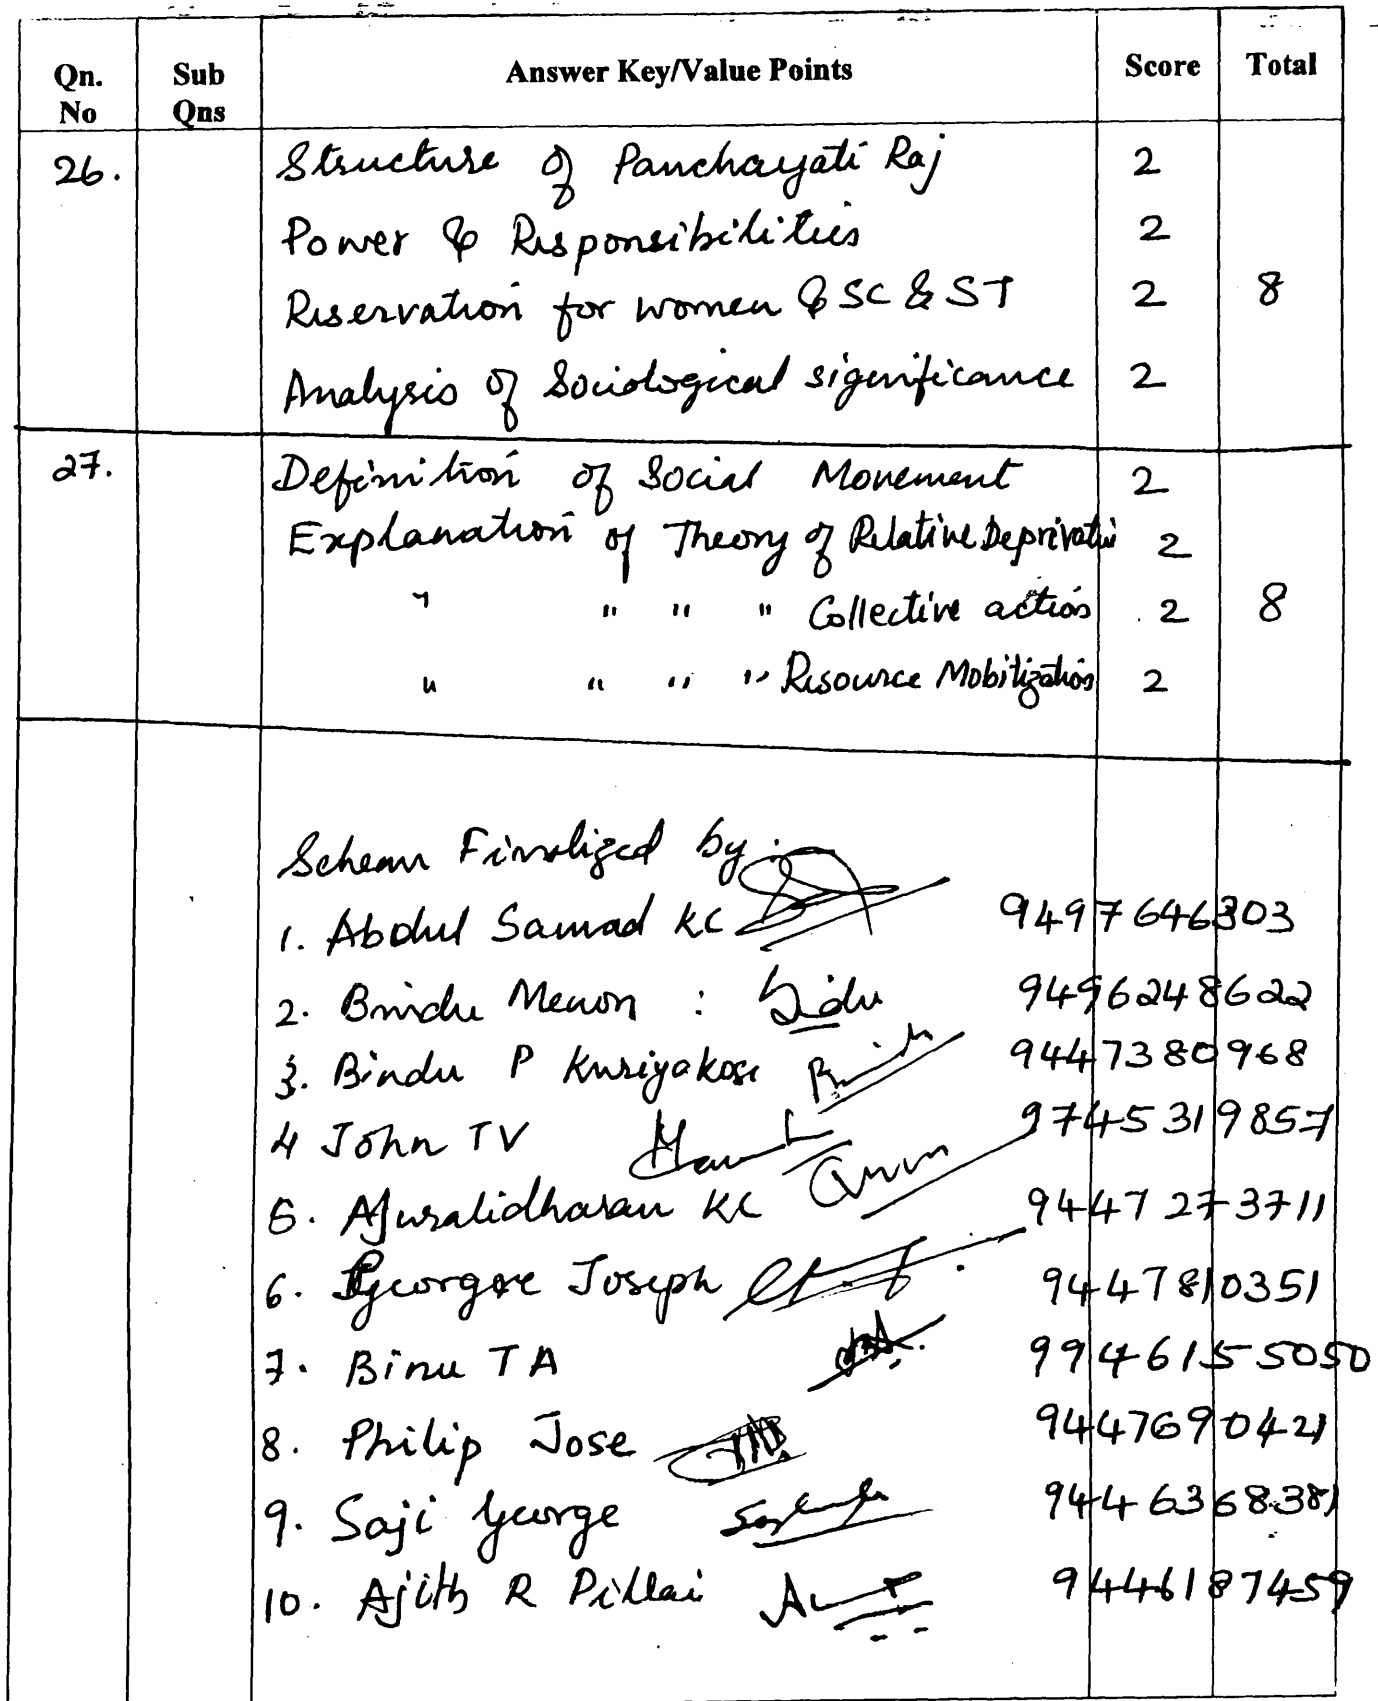 Qn. No Sub Qns Answer Key/Value Points Score Total
26. Structure of Panchayati Raj 2
Power & Responsibilities 2
Reservation for women & SC & ST 2 8
Analysis of Sociological significance 2
27. Definition of Social Movement 2
Explanation of Theory of Relative Deprivation 2
" " " " Collective action 2 8
" " " " Resource Mobilization 2
Scheme Finalized by :
1. Abdul Samad KC 9497646303
2. Bindu Menon : Bindu 9496248622
3. Bindu P Kuriyakose 9447380968
4 John TV 9745319857
5. Muralidharan KC 9447273711
6. George Joseph 9447810351
7. Binu TA 9946155050
8. Philip Jose 9447690421
9. Saji George 9446368381
10. Ajith R Pillai 9446187459